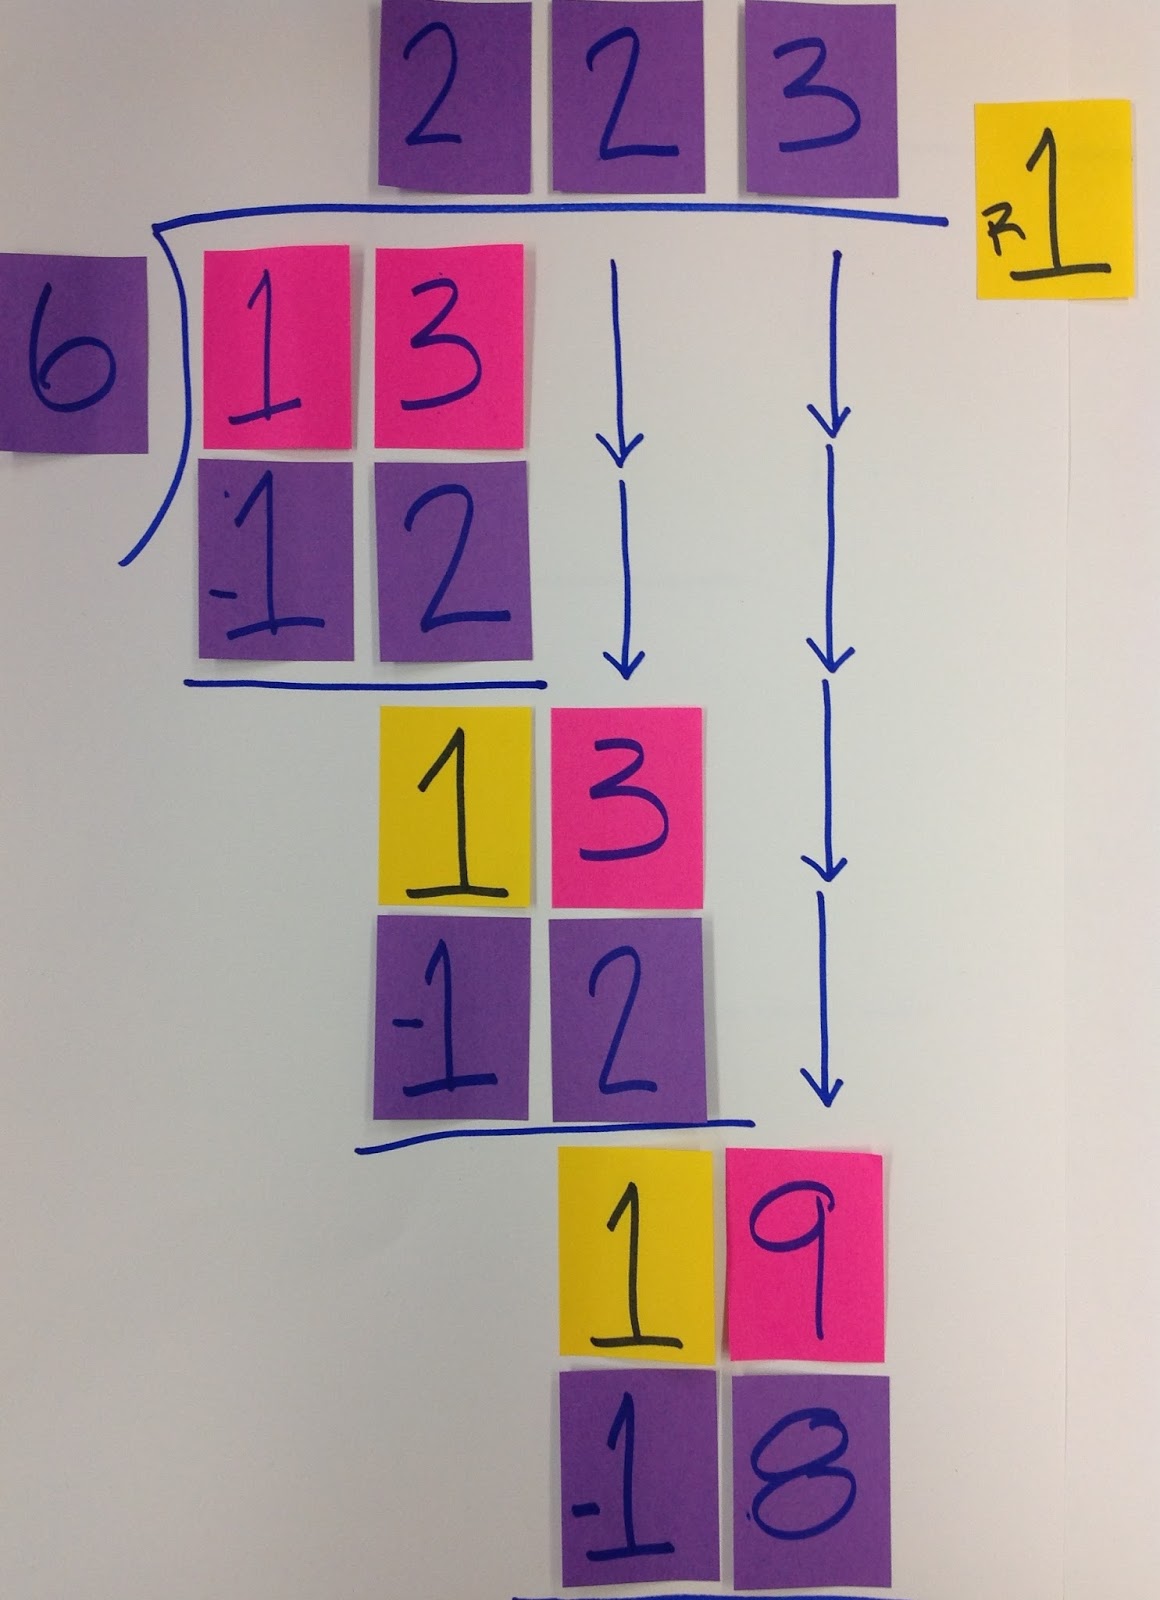 2 2 3 R 1
6 1 3
-1 2
1 3
-1 2
1 9
-1 8